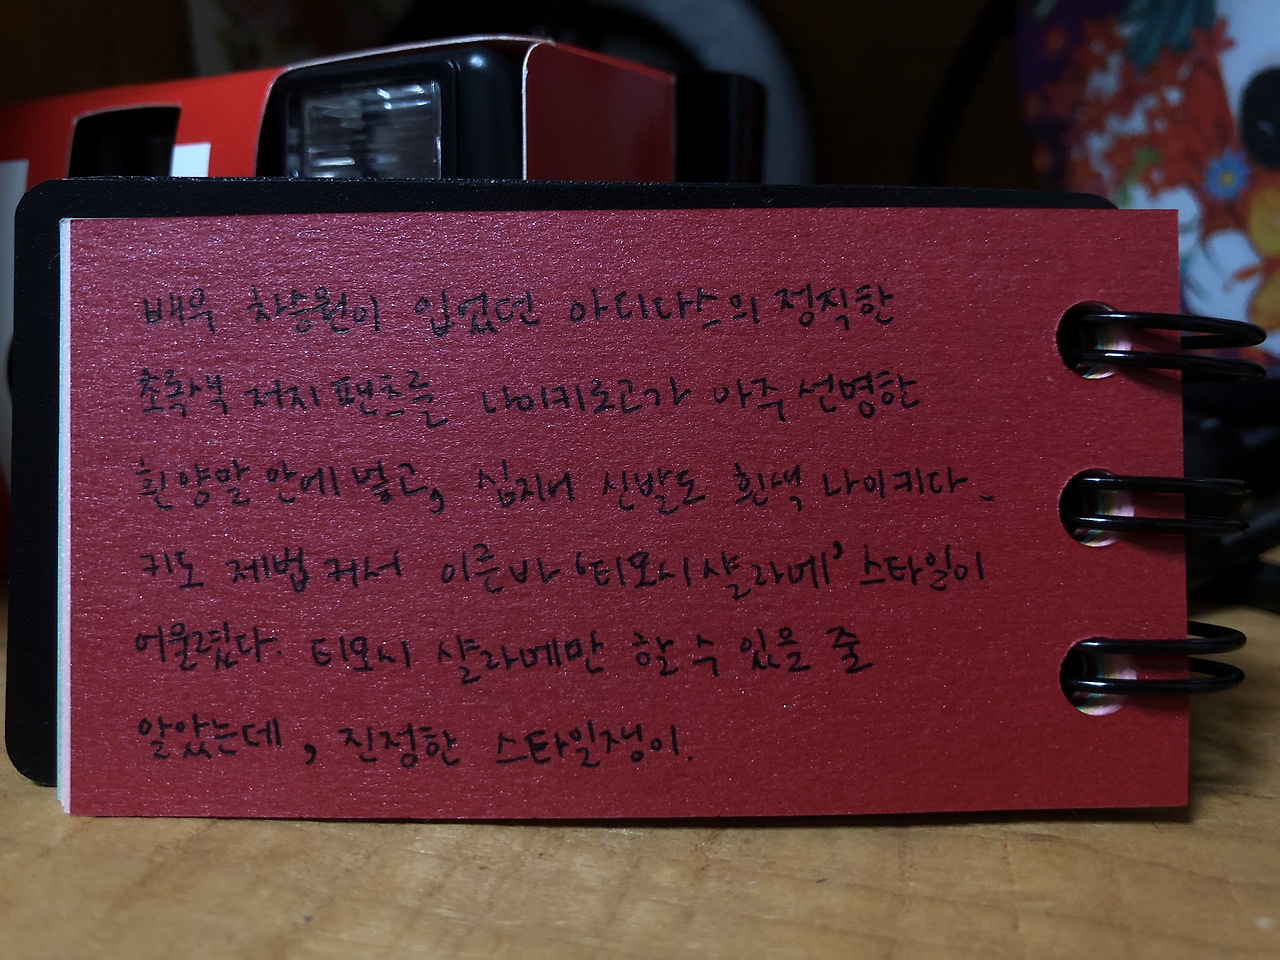 배우 차승원이 입었던 아디다스의 정직한
초록색 저지 팬츠를 나이키로고가 아주 선명한
흰 양말 안에 넣고, 심지어 신발도 흰색 나이키다.
키도 제법 커서 이른바 '티모시 샬라메' 스타일이
어울렸다. 티모시 샬라메만 할 수 있을 줄
알았는데, 진정한 스타일쟁이.